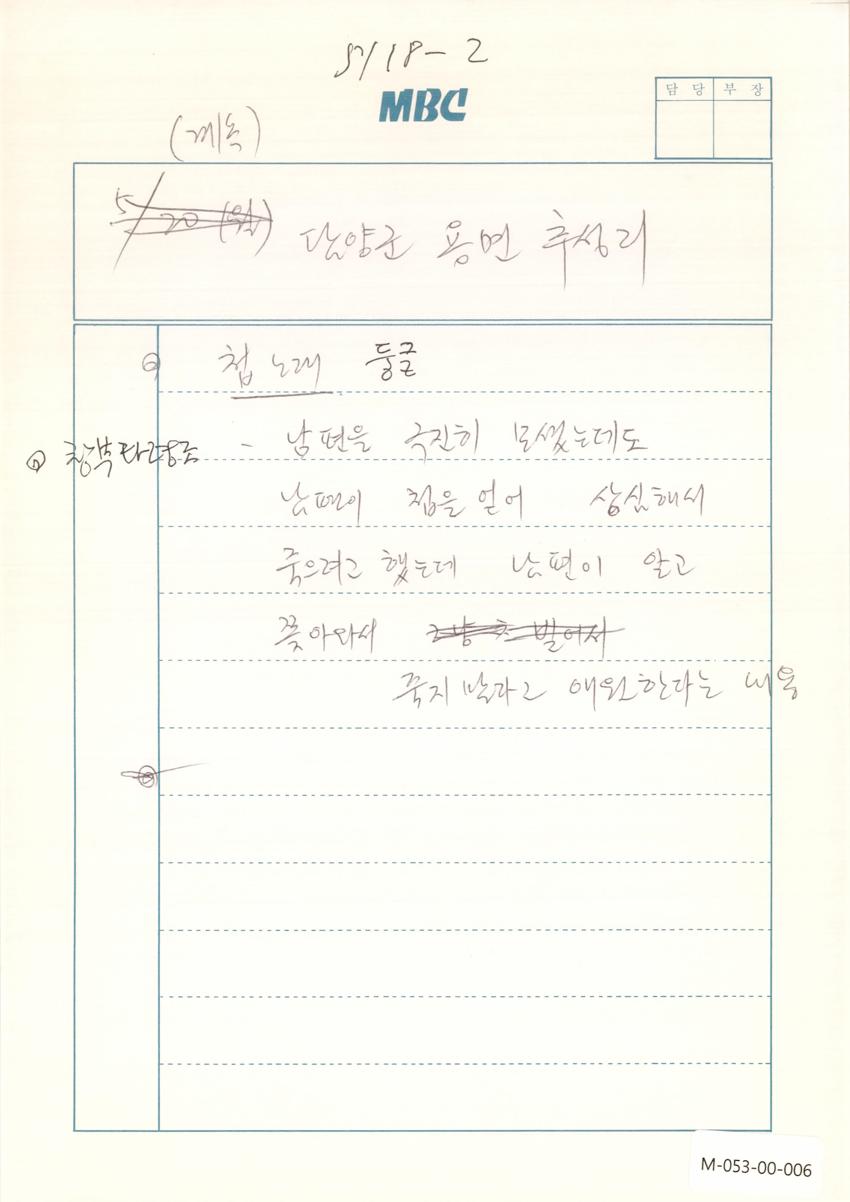 5/18-2
MBC
담 당 부 장
(계속)
5/20 (월) 담양군 용면 추성리
첩 노래 둥근
창부타령조 - 남편을 극진히 모셨는데도
남편이 첩을 얻어 상심해서
죽으려고 했는데 남편이 알고
쫓아와서 빌어서
죽지 말라고 애원한다는 내용
M-053-00-006